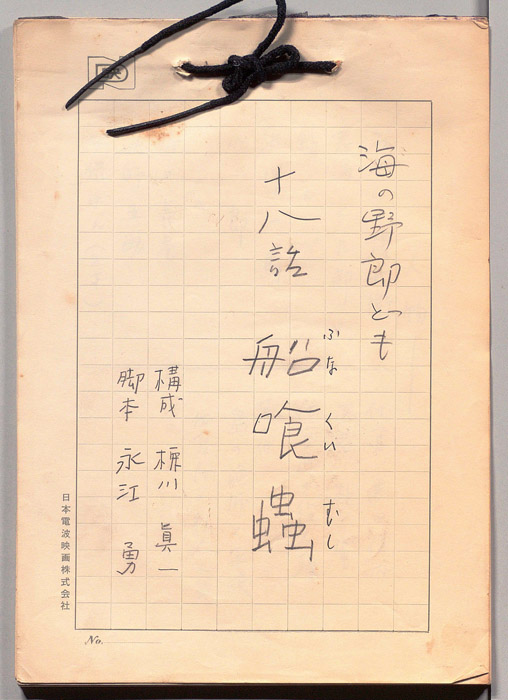 海の野郎ども
十八話 船喰蟲
ふなくいむし
構成 椋川 眞一
脚本 永江 勇
日本電波映画株式会社
No.